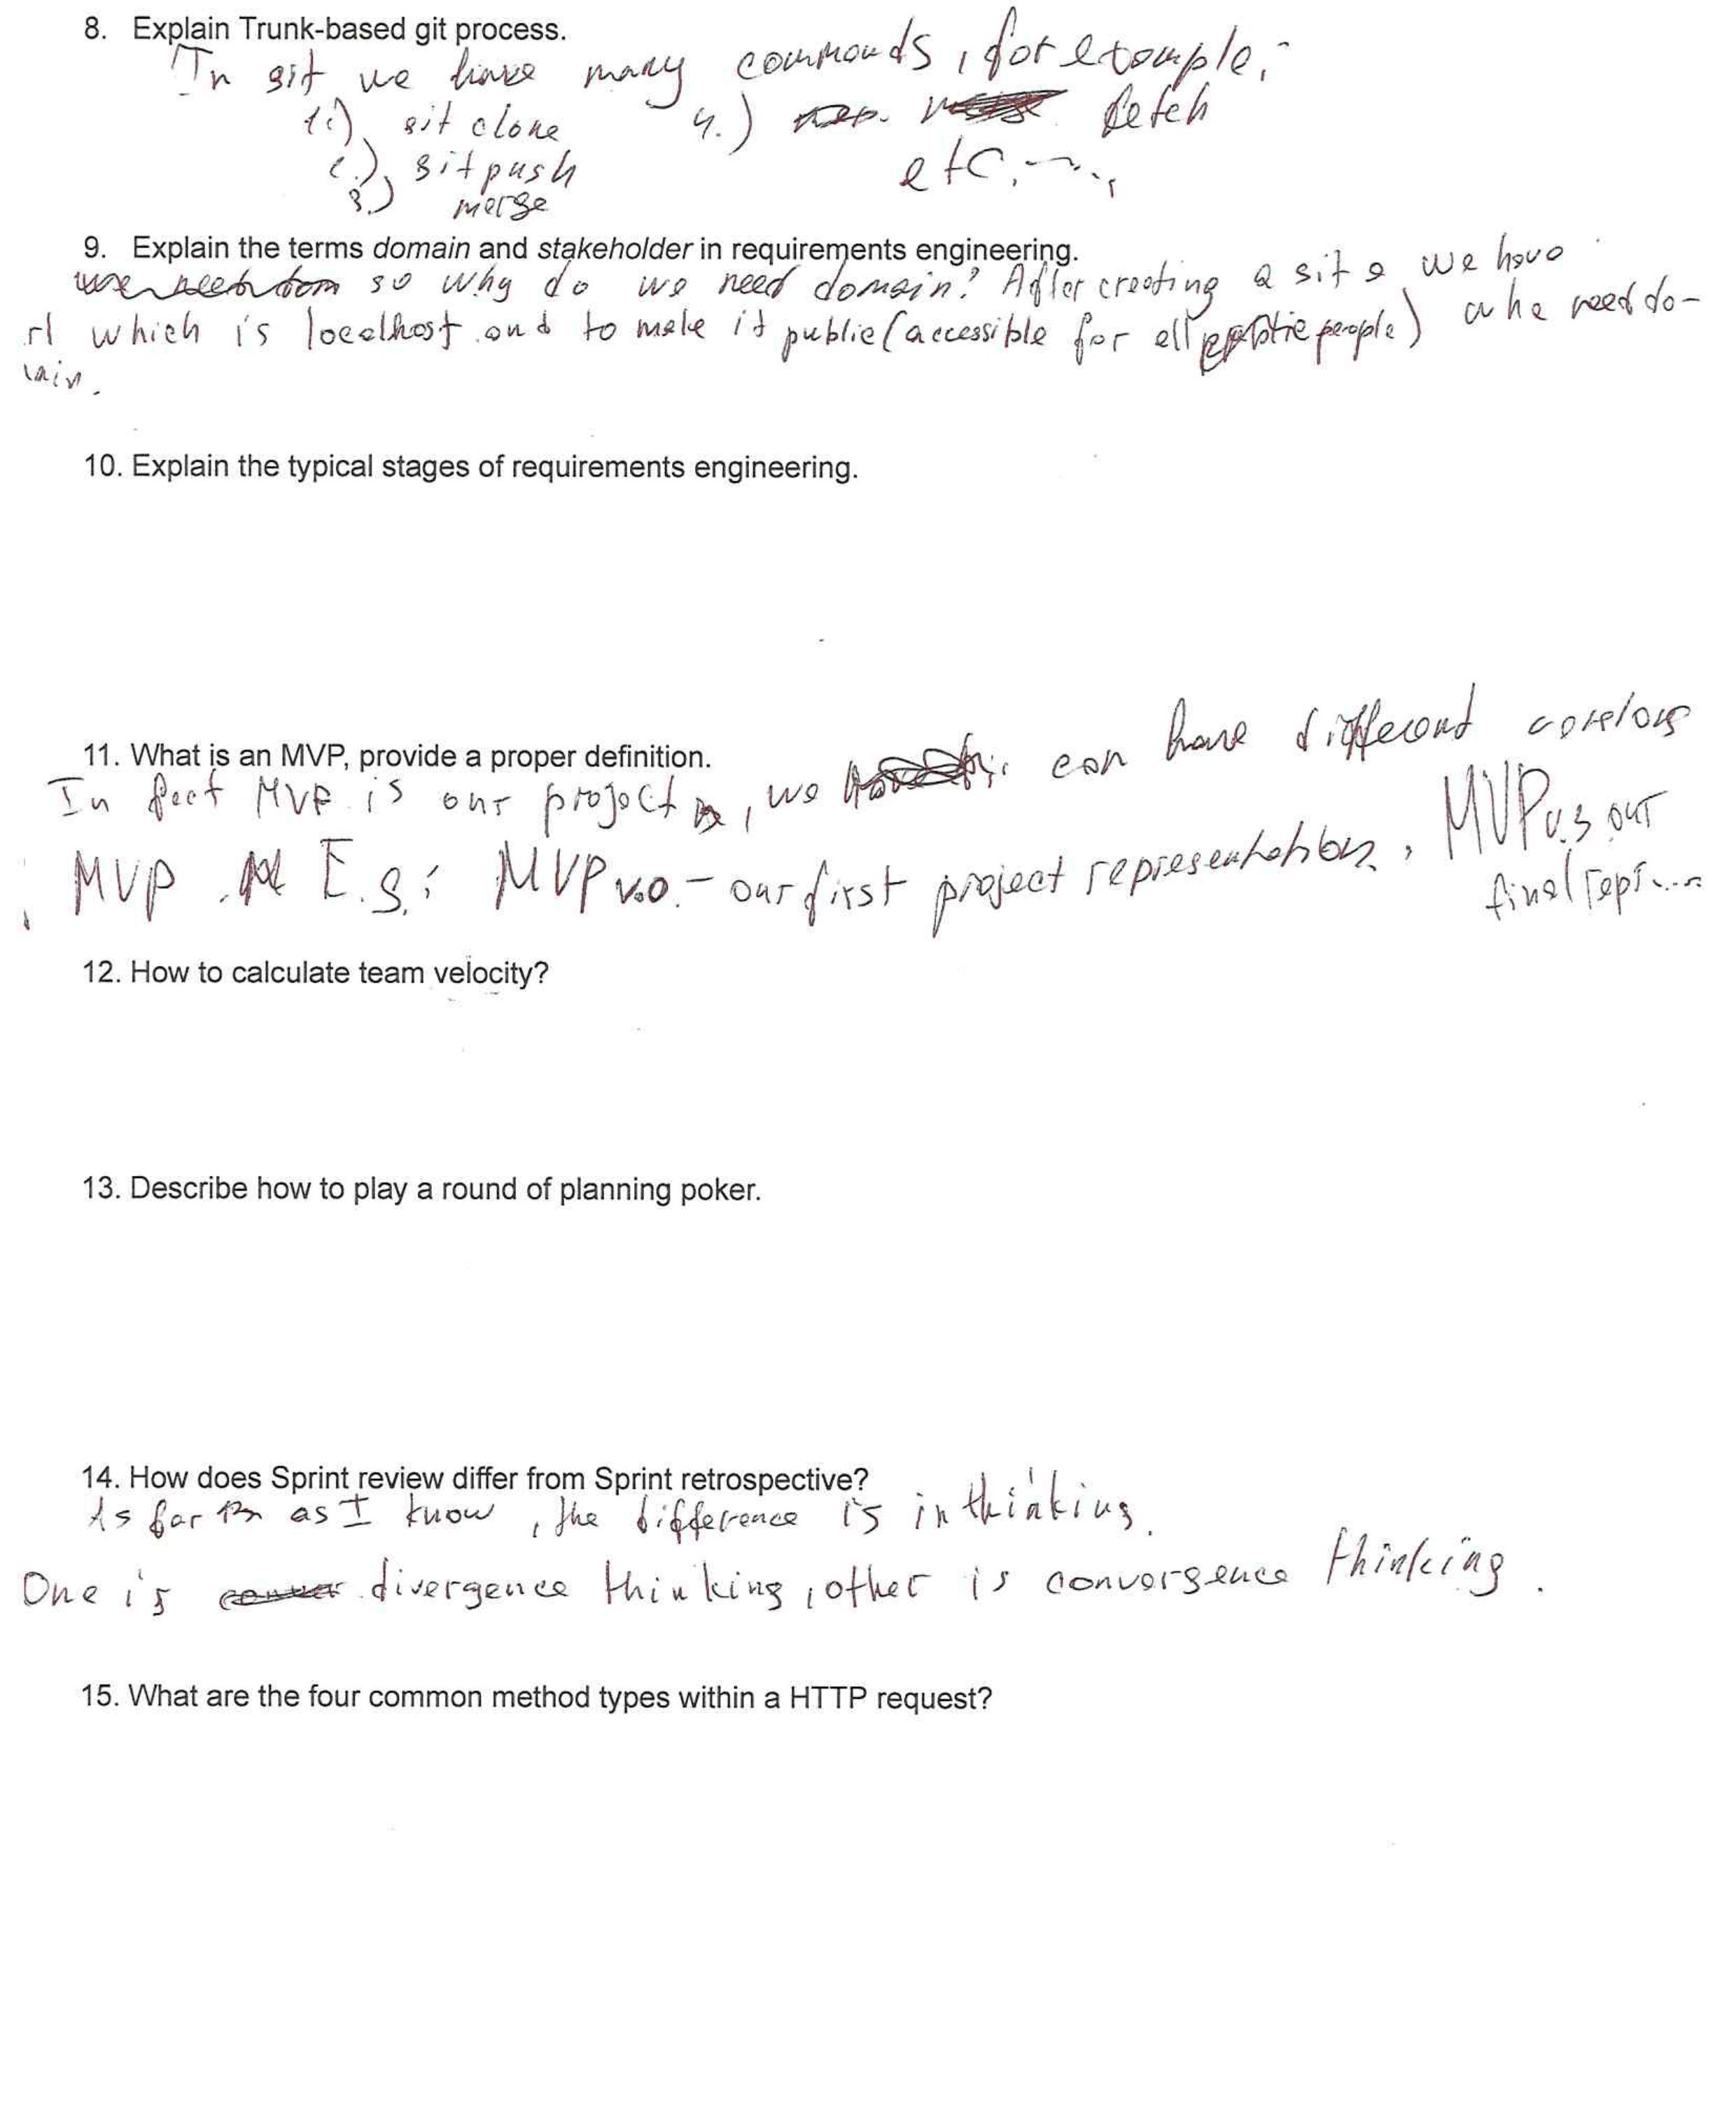 8. Explain Trunk-based git process.
In git we have many commands, for example:
1.) git clone 4.) fetch
2.) git push etc.
3.) merge
9. Explain the terms domain and stakeholder in requirements engineering.
so why do we need domain? After creating a site we have
which is localhost and to make it public (accessible for all people) need do-
main.
10. Explain the typical stages of requirements engineering.
11. What is an MVP, provide a proper definition.
In fact MVP is our project, we can have different
MVP. E.g.: MVP v.0 - our first project representation, MVP our
final
12. How to calculate team velocity?
13. Describe how to play a round of planning poker.
14. How does Sprint review differ from Sprint retrospective?
As far as I know, the difference is in thinking.
One is divergence thinking, other is convergence thinking.
15. What are the four common method types within a HTTP request?